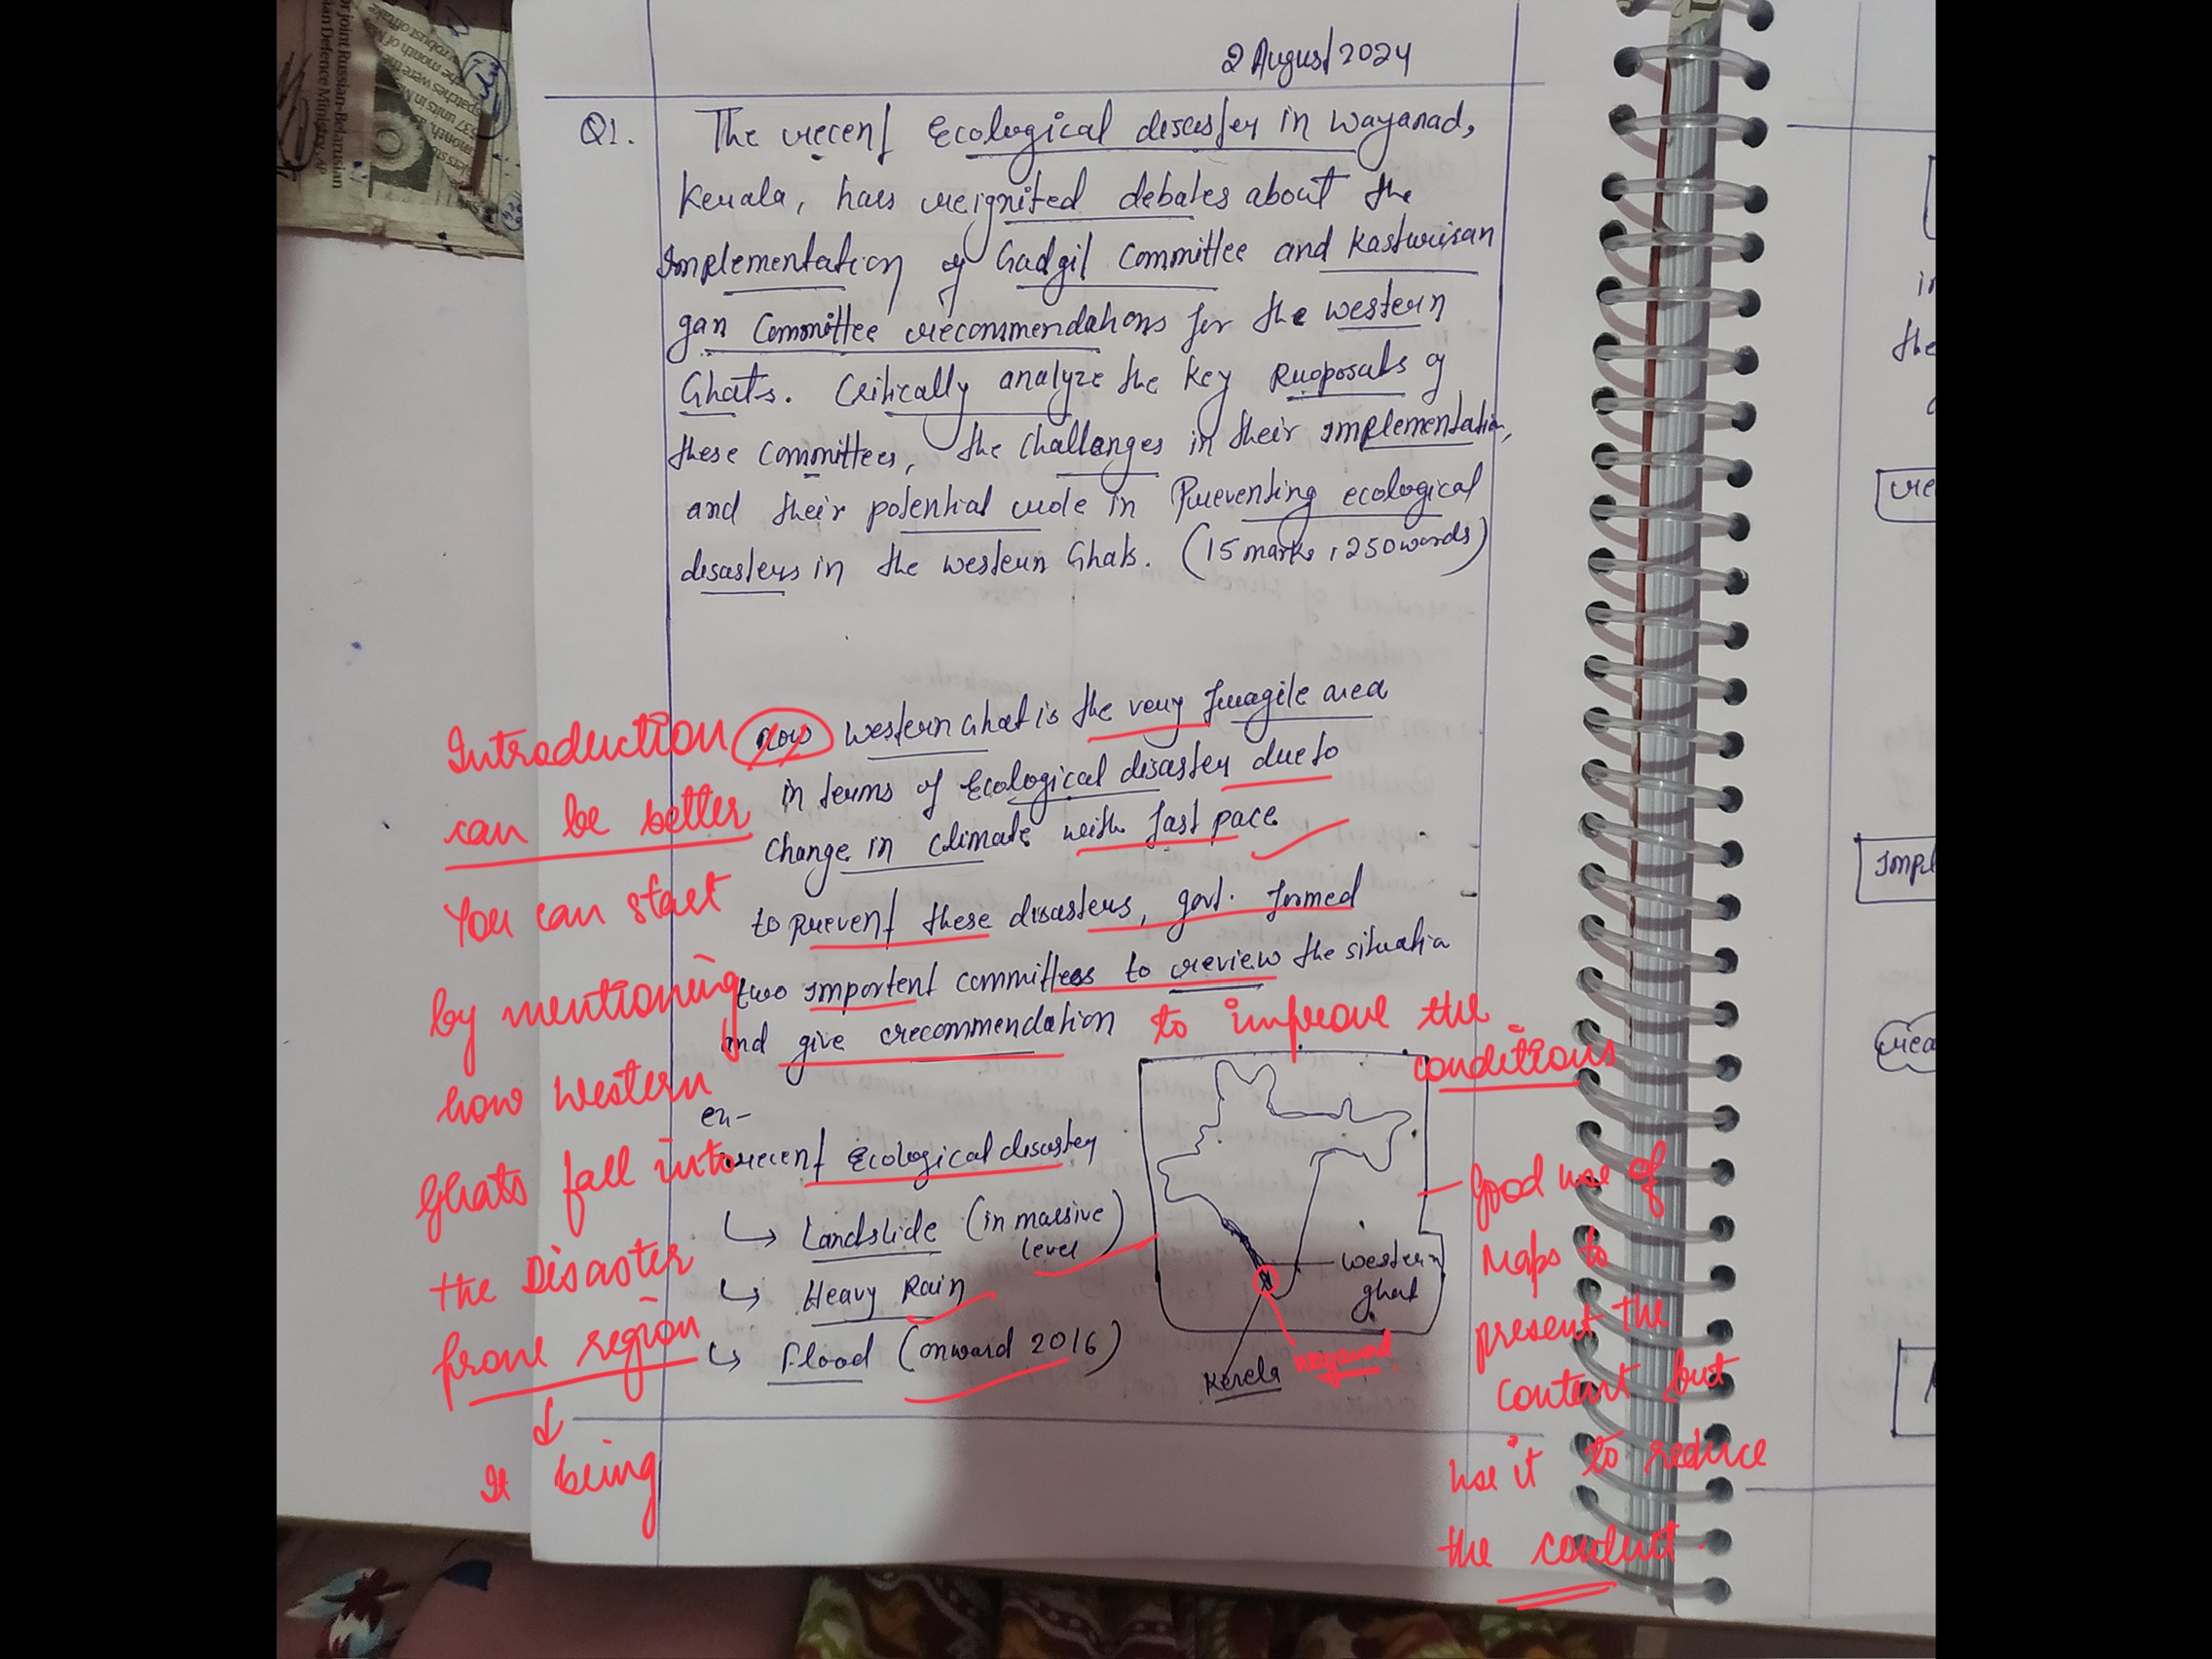 2 August 2024
Q1. The recent Ecological disaster in Wayanad,
Kerala, has reignited debates about the
Implementation of Gadgil Committee and Kasturiran
gan Committee recommendations for the western
Ghats. Critically analyze the key Proposals of
these committees, the challanges in their implementation,
and their potential role in Preventing ecological
disasters in the western Ghats. (15 marks, 250 words)
now western Ghat is the very fragile area
in terms of Ecological disaster due to
change in climate with fast pace
to prevent these disasters, govt. formed
two importent committees to review the situatio
and give recommendation to improve the
conditions
ex-
recent Ecological disaster
↳ Landslide (in massive
level)
↳ Heavy Rain
↳ Flood (onward 2016)
western
ghat
Kerela
Wayanad
Introduction
can be better
You can start
by mentioning
how Western
Ghats fall into
the Disaster
prone region
↓
It being
Good use of
Maps to
present the
content but
use it to reduce
the content.
joint Russian-Belarusian
Defence Ministry